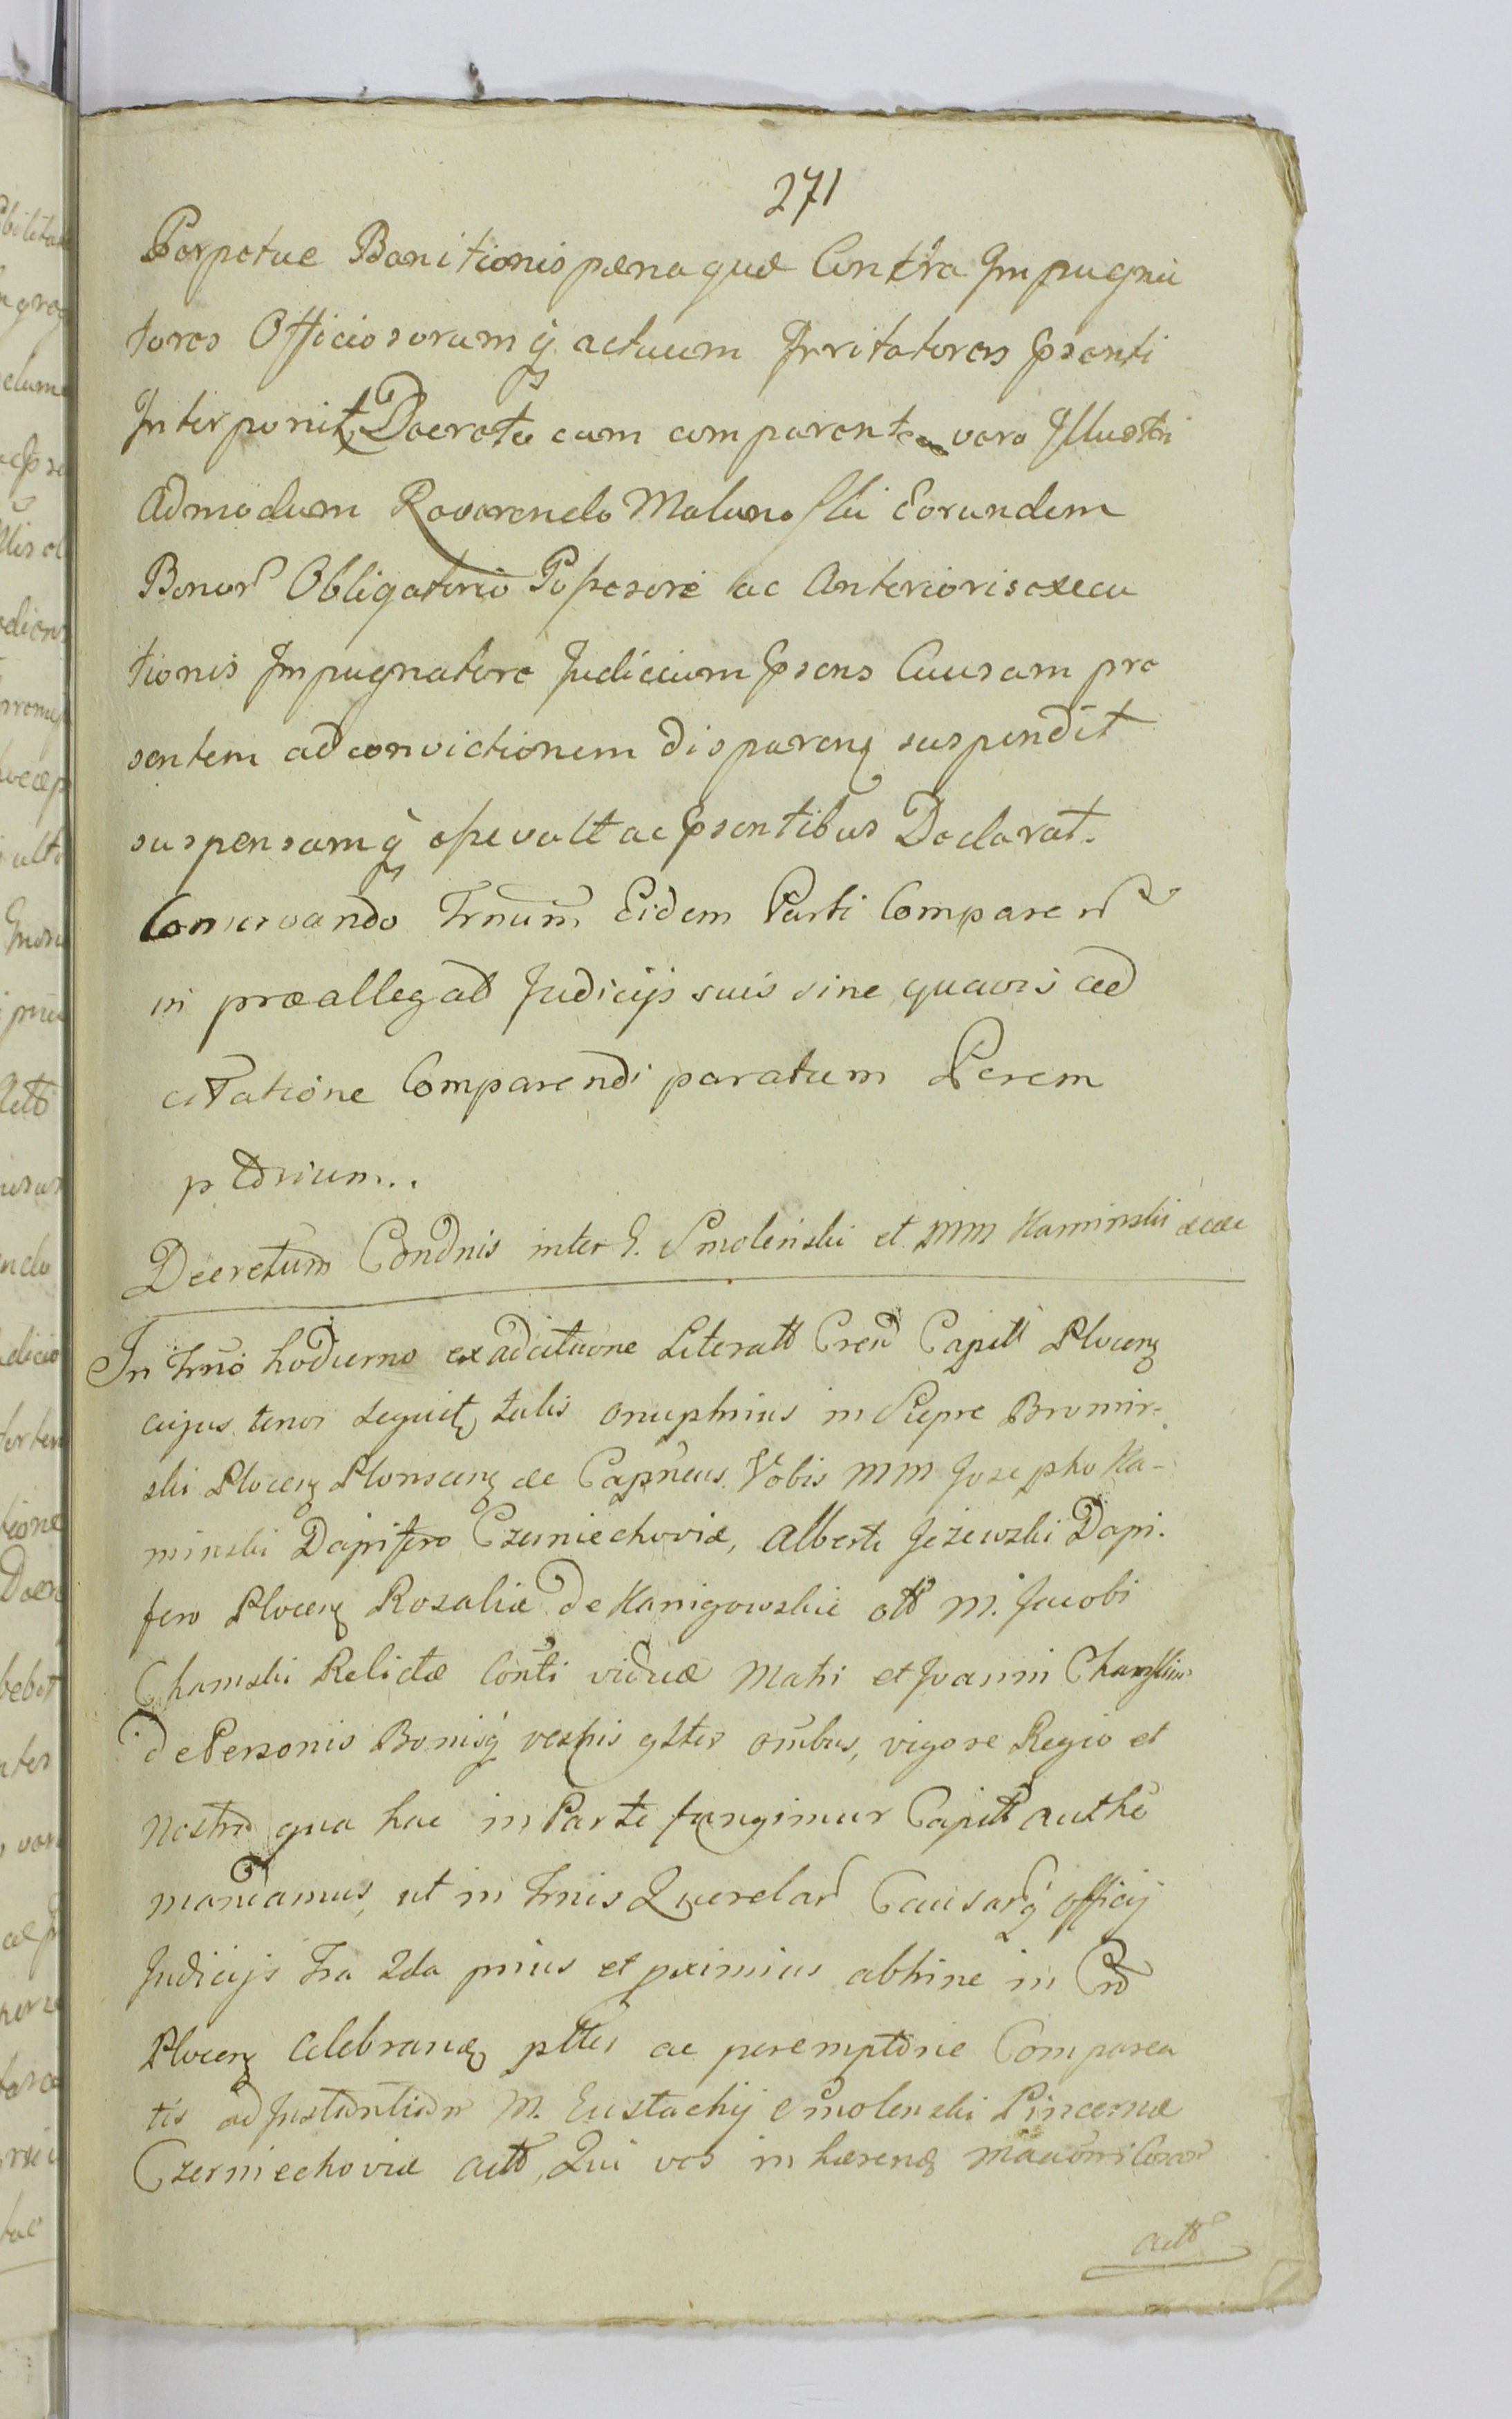 271
Perpetuæ Banitionis pœnaque Contra Impugna
tores Officiosorumq actuum Irritatores Psenti
Interponit Decreto cum comparente vero Illustri
Admodum Reverendo Malanoski Eorundem
Bonor Obligatorio Possesore ac Anterioris execu
tionis Impugnatore Judicium Psens Causam pre
sentem ad convictionem disparenz suspendit
suspensamq esse vult ac Psentibus Declarat.
Conservando Trnum Eidem Parti Comparen
in præallegat Judicijs suis sine quavis ad
citatione Comparendi paratum Perem
ptorium..
Decretum Condnis inter G. Smoleński et MM Kaminski &c
In Trno hodierno ex adcitaone Literatt Cren Capitt Plocenz
cujus tenor sequitz talis Onuphrius in Siepre Bromir-
ski Plocenz Plonscenz &c Capneus Vobis MM Josepho Ka-
minski Dapifero Czerniechoviæ, Alberto Jeżewski Dapi-
fero Plocenz Rosaliæ de Kanigowskie ott M. Jacobi
Chamski Relictæ Conti viduæ Matri et Joanni Chamskim
de Personis Bonisq vestris gltter omibus, vigore Regio et
nostro qua hac in Parte fungimur Capitt authe
mandamus, ut in Trnis Querelar Causarq officij
Judicijs Fra 2da prius et pximius abhinc in Crd
Plocenz celebrand pltter ac peremptorie Comparea
tis ad Instantiam M. Eustachij Smolenski Pincernæ
Czerniechoviæ actt, Qui vos in hærend
actt